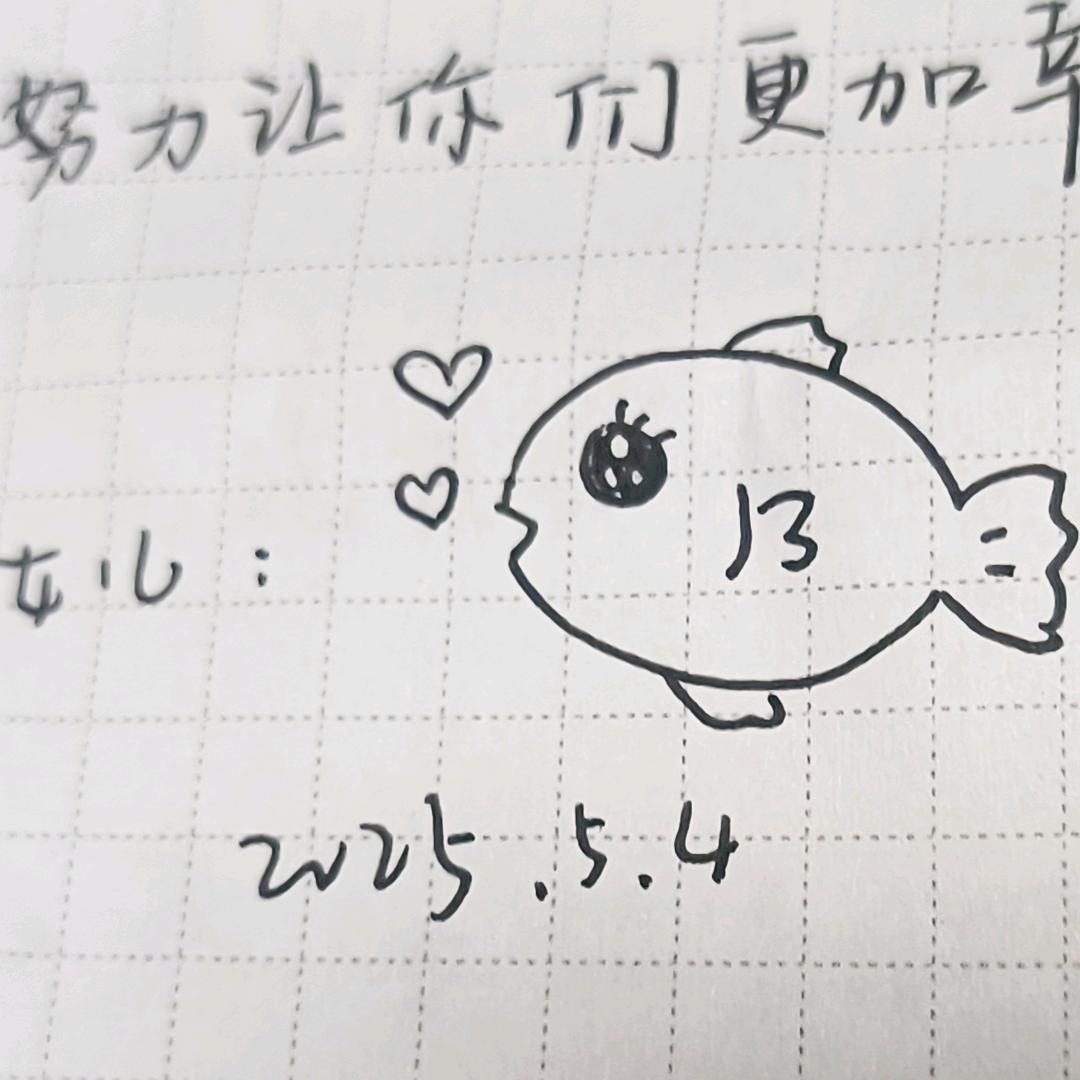 努力让你们更加幸
女儿：
13
2025.5.4